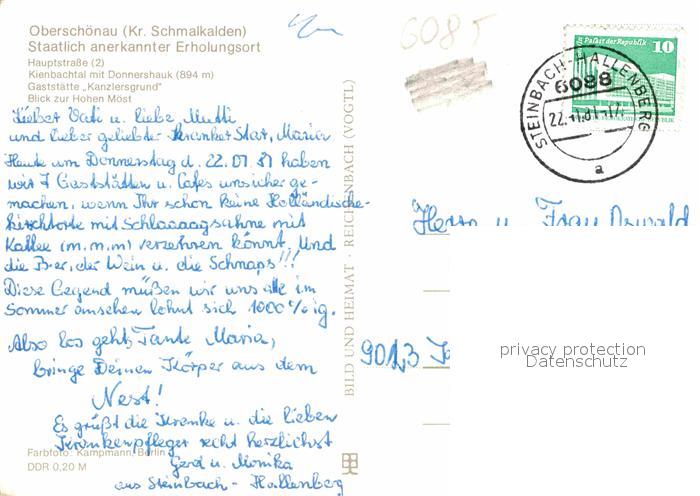 Oberschönau (Kr. Schmalkalden)
Staatlich anerkannter Erholungsort
Hauptstraße (2)
Kienbachtal mit Donnershauk (894 m)
Gaststätte „Kanzlersgrund"
Blick zur Hohen Möst
Lieber Vati u. liebe Mutti
und lieber geliebter Kranker Star, Maria
Heute am Donnerstag d. 22.01 81 haben
wir 7 Gaststätten u. Cafes unsicher ge-
machen, wenn Ihr schon keine Holländische-
kirschtorte mit Schlaaaagsahne mit
Kaffee (m.m.m) verzehren könnt. Und
die Bier, der Wein u. die Schnaps!!!
Diese Gegend müßen wir uns alle im
Sommer ansehen lohnt sich 1000%ig.
Also los geht's Tante Maria,
bringe Deinen Körper aus dem
Nest!
Es grüßt die Kranke u. die lieben
Krankenpfleger recht herzlichst
Gerd u. Monika
aus Steinbach-Hallenberg
Farbfoto: Kampmann, Berlin
DDR 0,20 M
BILD UND HEIMAT · REICHENBACH (VOGTL)
6085
Palast der Republik 10
STEINBACH-HALLENBERG
6098
a
Herrn u. Frau Oswald
9013
privacy protection
Datenschutz